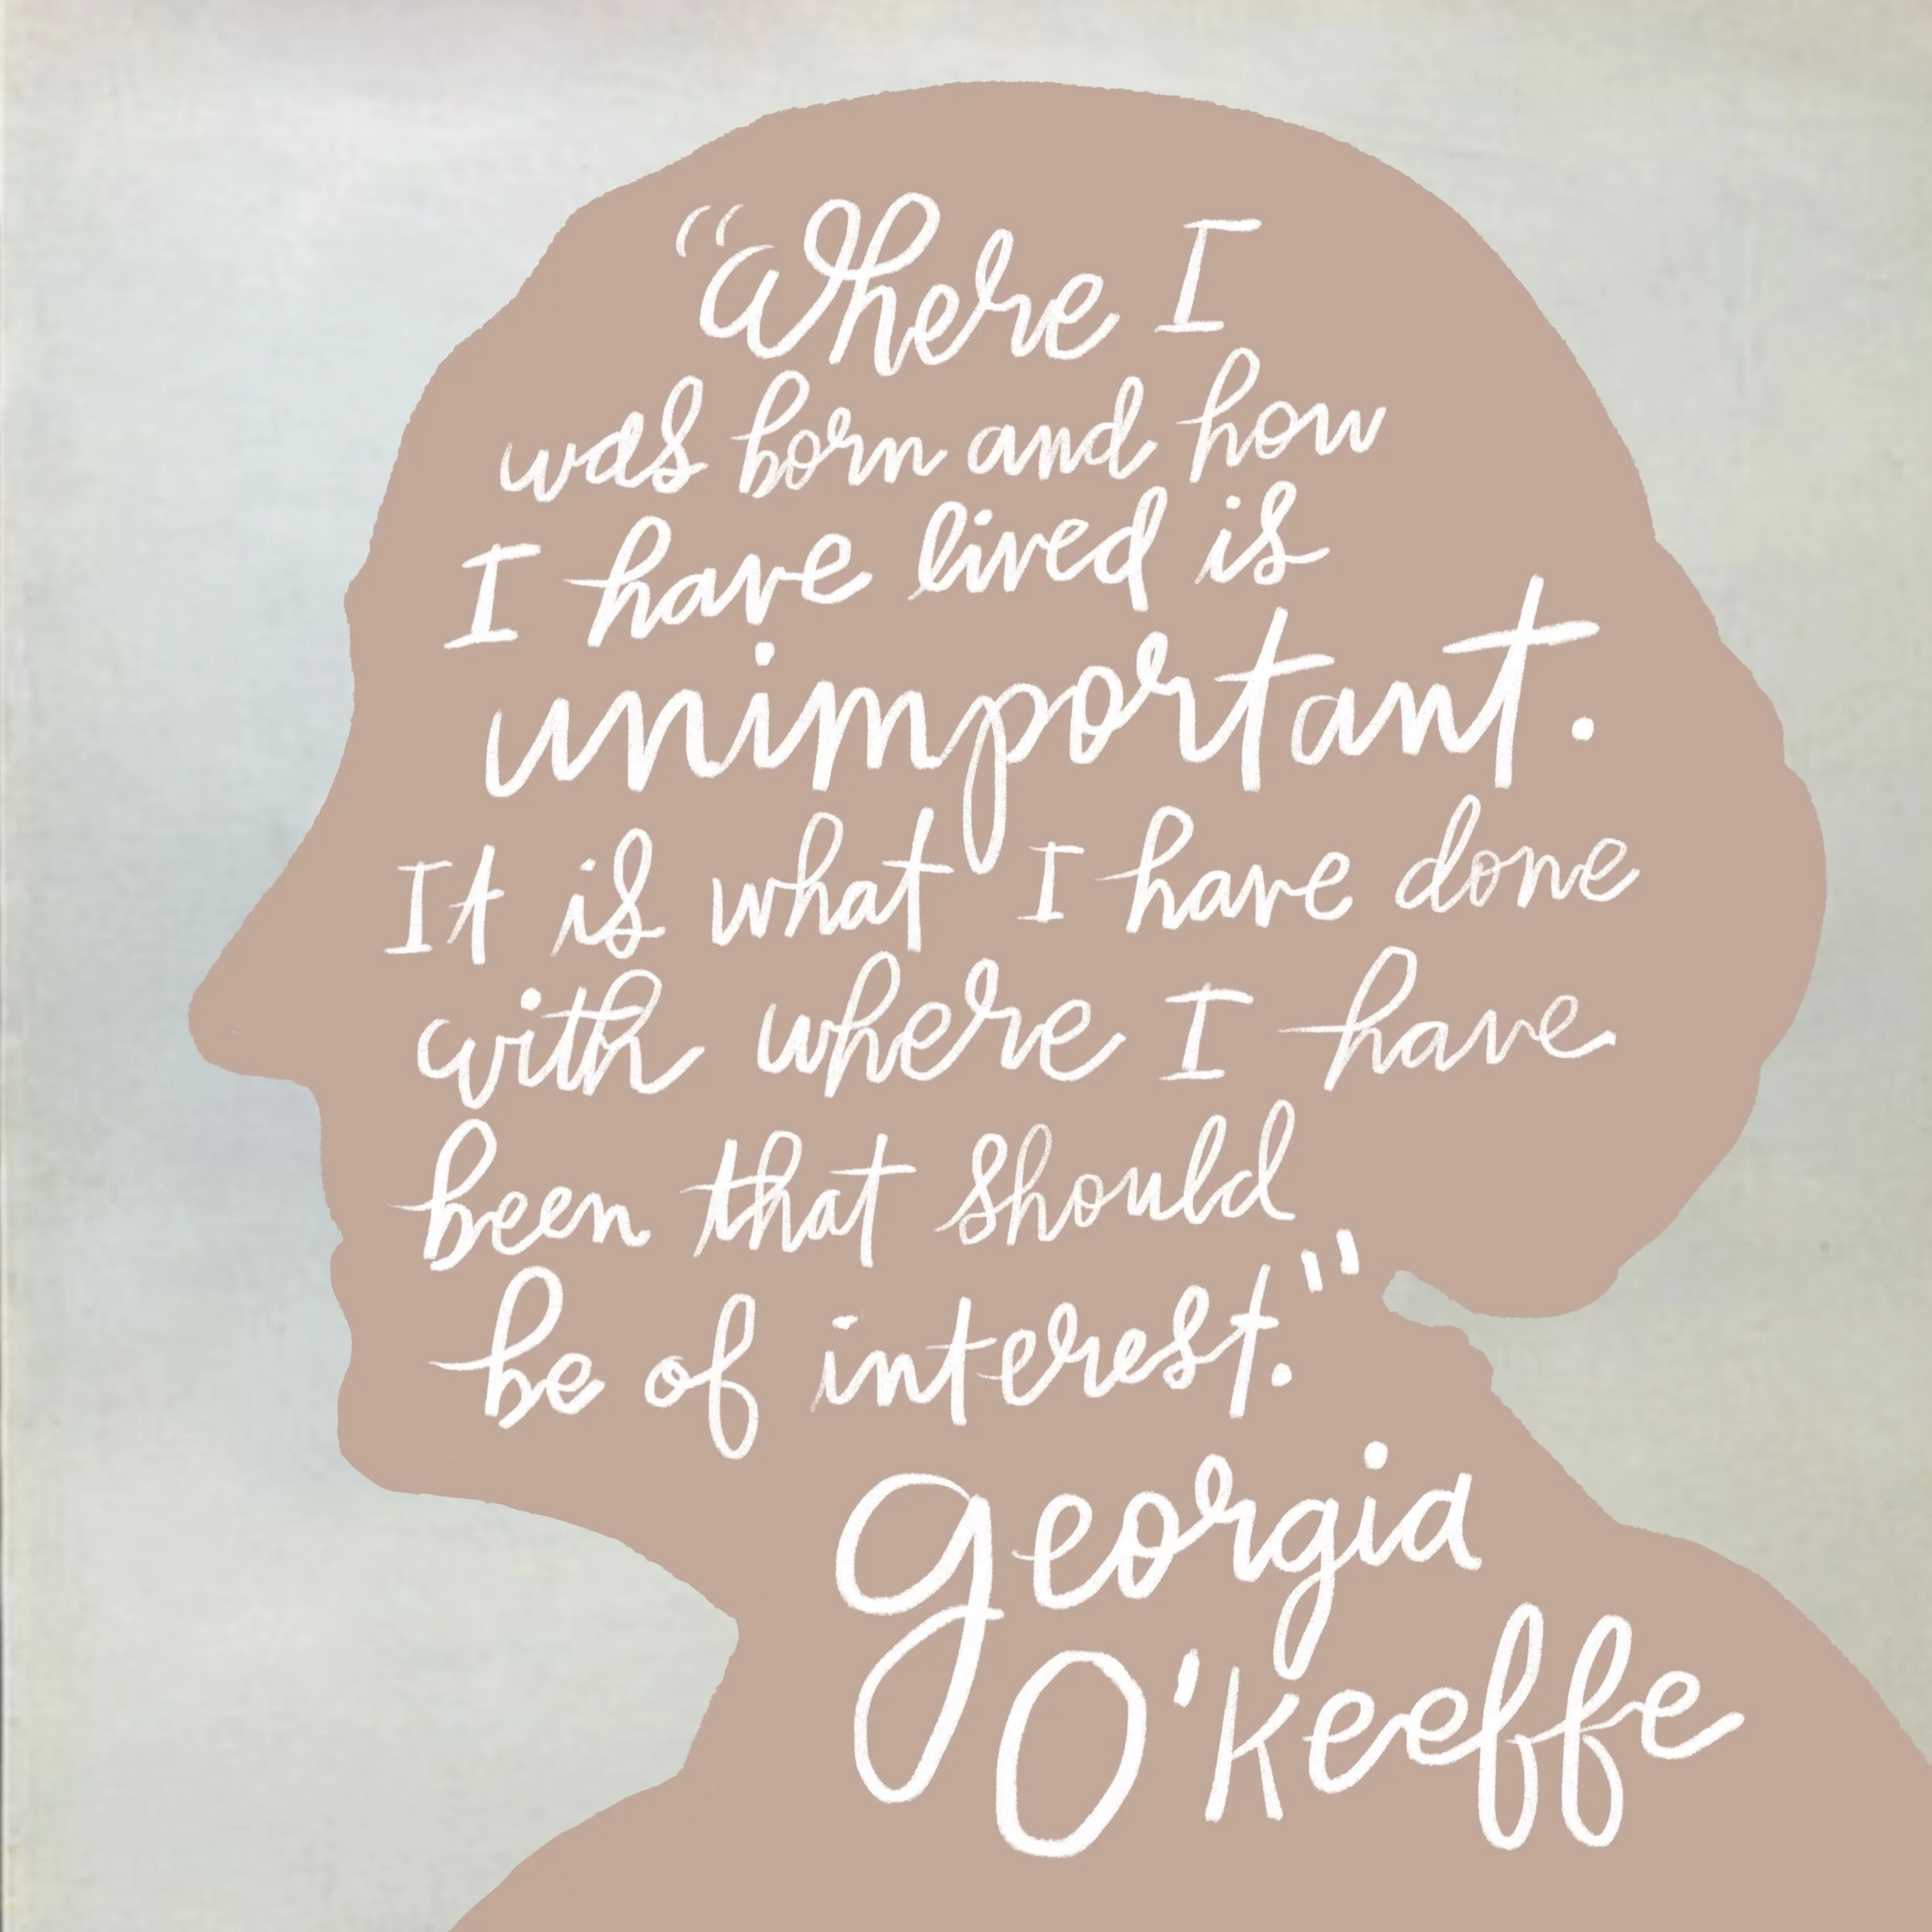 “Where I
was born and how
I have lived is
unimportant.
It is what I have done
with where I have
been that should
be of interest."
Georgia
O'Keeffe